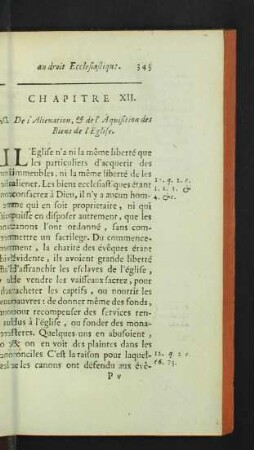 au droit Ecclesiastique. 345
CHAPITRE XII.
De l'Alienation, & de l'Aquisition des
Biens de l'Eglise.
L'Eglise n'a ni la même liberté que
les particuliers d'acquerir des
immeubles, ni la même liberté de les
aliener. Les biens ecclesiastiques étant
consacrez à Dieu, il n'y a aucun hom-
me qui en soit proprietaire, ni qui
puisse en disposer autrement, que les
canons l'ont ordonné, sans com-
mettre un sacrilege. Du commence-
ment, la charité des évêques étant
évidente, ils avoient grande liberté
d'affranchir les esclaves de l'église,
de vendre les vaisseaux sacrez, pour
racheter les captifs, ou nourrir les
pauvres: de donner même des fonds,
pour recompenser des services ren-
dus à l'église, ou fonder des mona-
steres. Quelques-uns en abusoient,
& on en voit des plaintes dans les
conciles C'est la raison pour laquel-
le les canons ont défendu aux évê-
P v
12. q. 2. c.
1. 2. 3. &
4. &c.
12. q. 2. c.